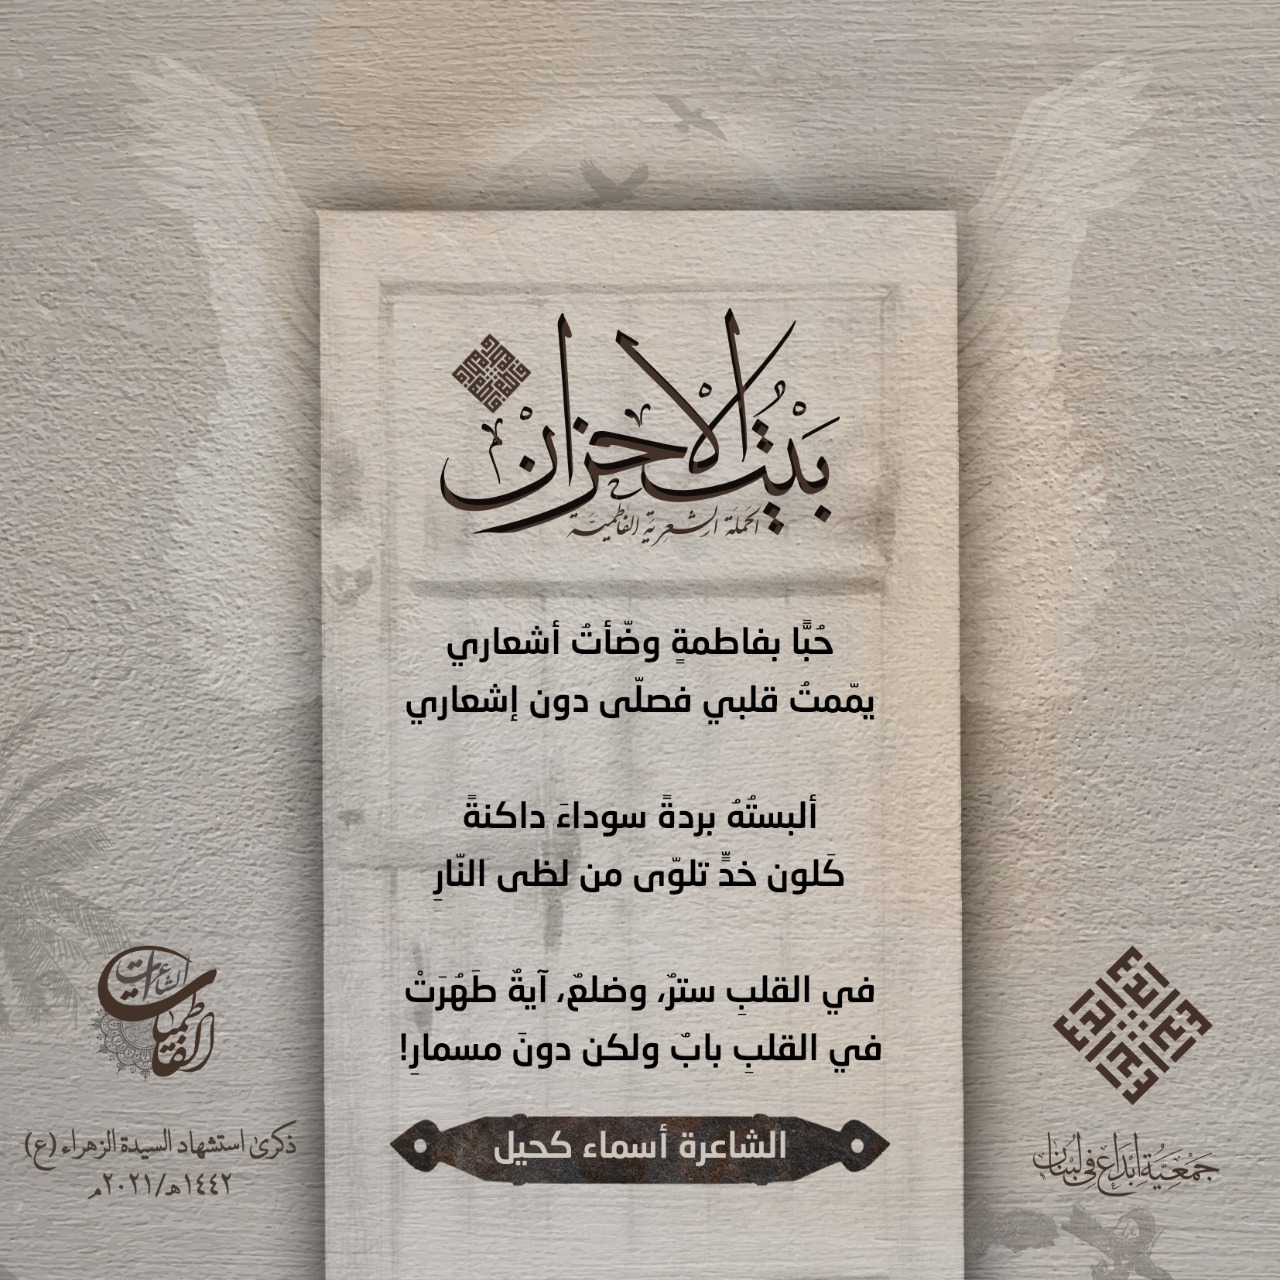 بَيْتُ الاحزانْ
الحملة الشعرية الفاطميّة
حُبًّا بفاطمةٍ وضّأتُ أشعاري
يمّمتُ قلبي فصلّى دون إشعاري
ألبستُهُ بردةً سوداءَ داكنةً
كَلون خدٍّ تلوّى من لظى النّارِ
في القلبِ سترٌ، وضلعٌ، آيةٌ طَهُرَتْ
في القلبِ بابٌ ولكن دونَ مسمارِ!
الشاعرة أسماء كحيل
الشاعرات
الفاطميات
ذكرى استشهاد السيدة الزهراء (ع)
١٤٤٢هـ/٢٠٢١م
جَمْعِيَّة إبْدَاع في لبْنان